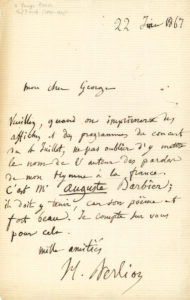 22 Juin 1867
mon cher George
Veuillez, quand on imprimera des
affiches et des programmes du concert
du 4 Juillet, ne pas oublier d'y mettre
le nom de l'auteur des paroles
de mon Hymne à la france.
C'est Mr Auguste Barbier;
il doit y tenir, car son poème est
fort beau. Je compte sur vous
pour cela.
mille amitiés
H. Berlioz